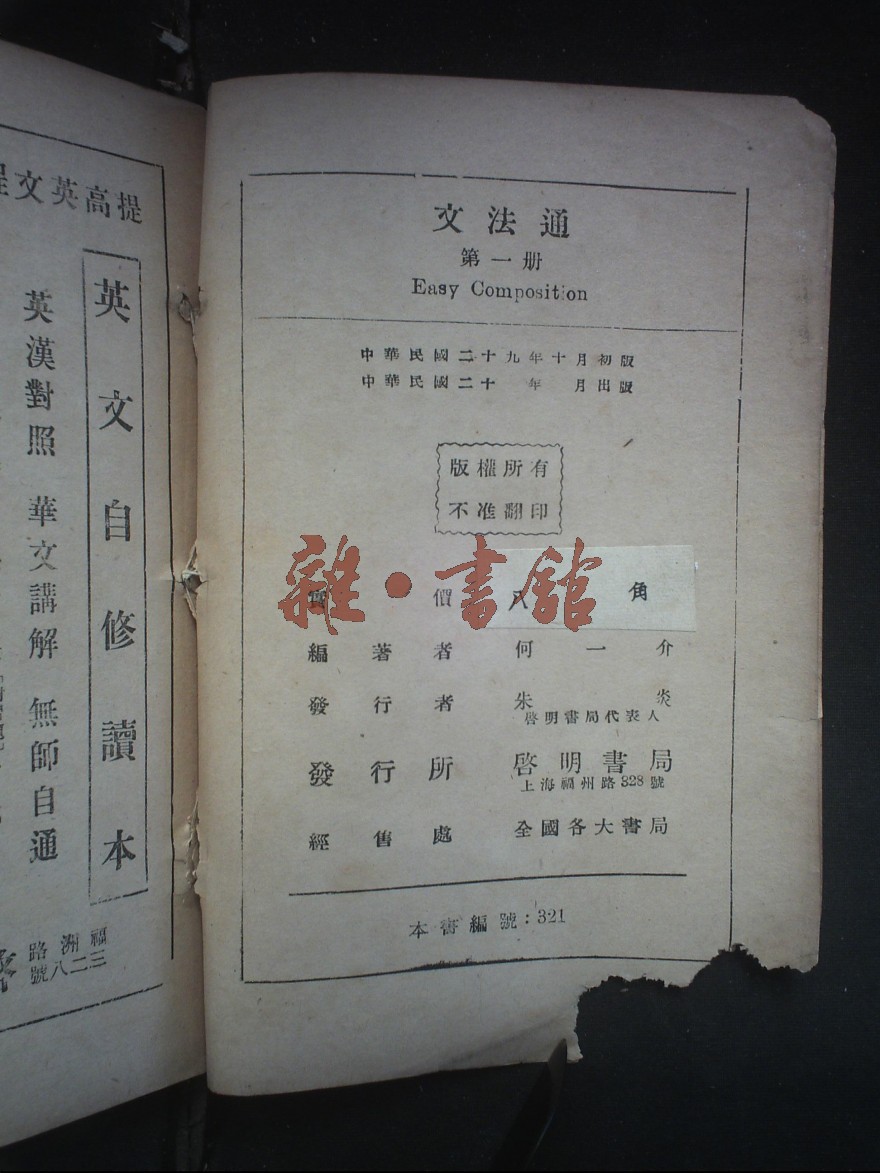 文法通
第一册
Easy Composition
中華民國二十九年十月初版
中華民國二十 年 月出版
版權所有
不准翻印
雜·書館
實價 八角
編著者 何一介
發行者 朱炎
啓明書局代表人
發行所 啓明書局
上海福州路328號
經售處 全國各大書局
本書編號：321
提高英文程
英文自修讀本
英漢對照 華文講解 無師自通
福洲路
三二八號